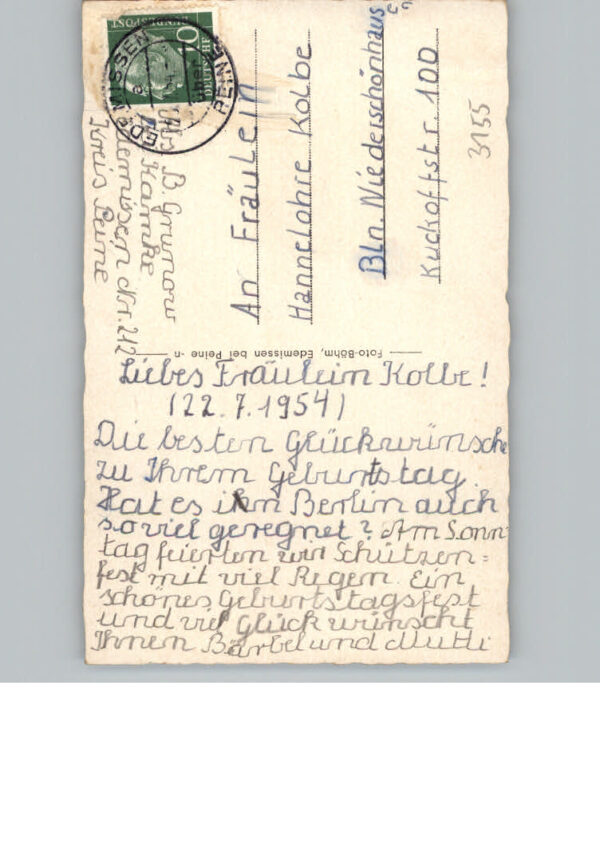 DEUTSCHE
BUNDESPOST
10
EDEMISSEN
PEINE
B. Grunow
Kamke
Edemissen Nr. 212
Kreis Peine
An Fräulein
Hannelohre Kolbe
Bln. Niederschönhaus
Kuckoffstr. 100
3155
Foto-Böhm, Edemissen bei Peine
Liebes Fräulein Kolbe!
(22.7.1954)
Die besten Glückwünsche
zu Ihrem Geburtstag.
Hat es in Berlin auch
so viel geregnet? Am Sonn-
tag feierten wir Schützen=
fest mit viel Regen. Ein
schönes Geburtstagsfest
und viel Glück wünscht
Ihnen Bärbel und Mutti